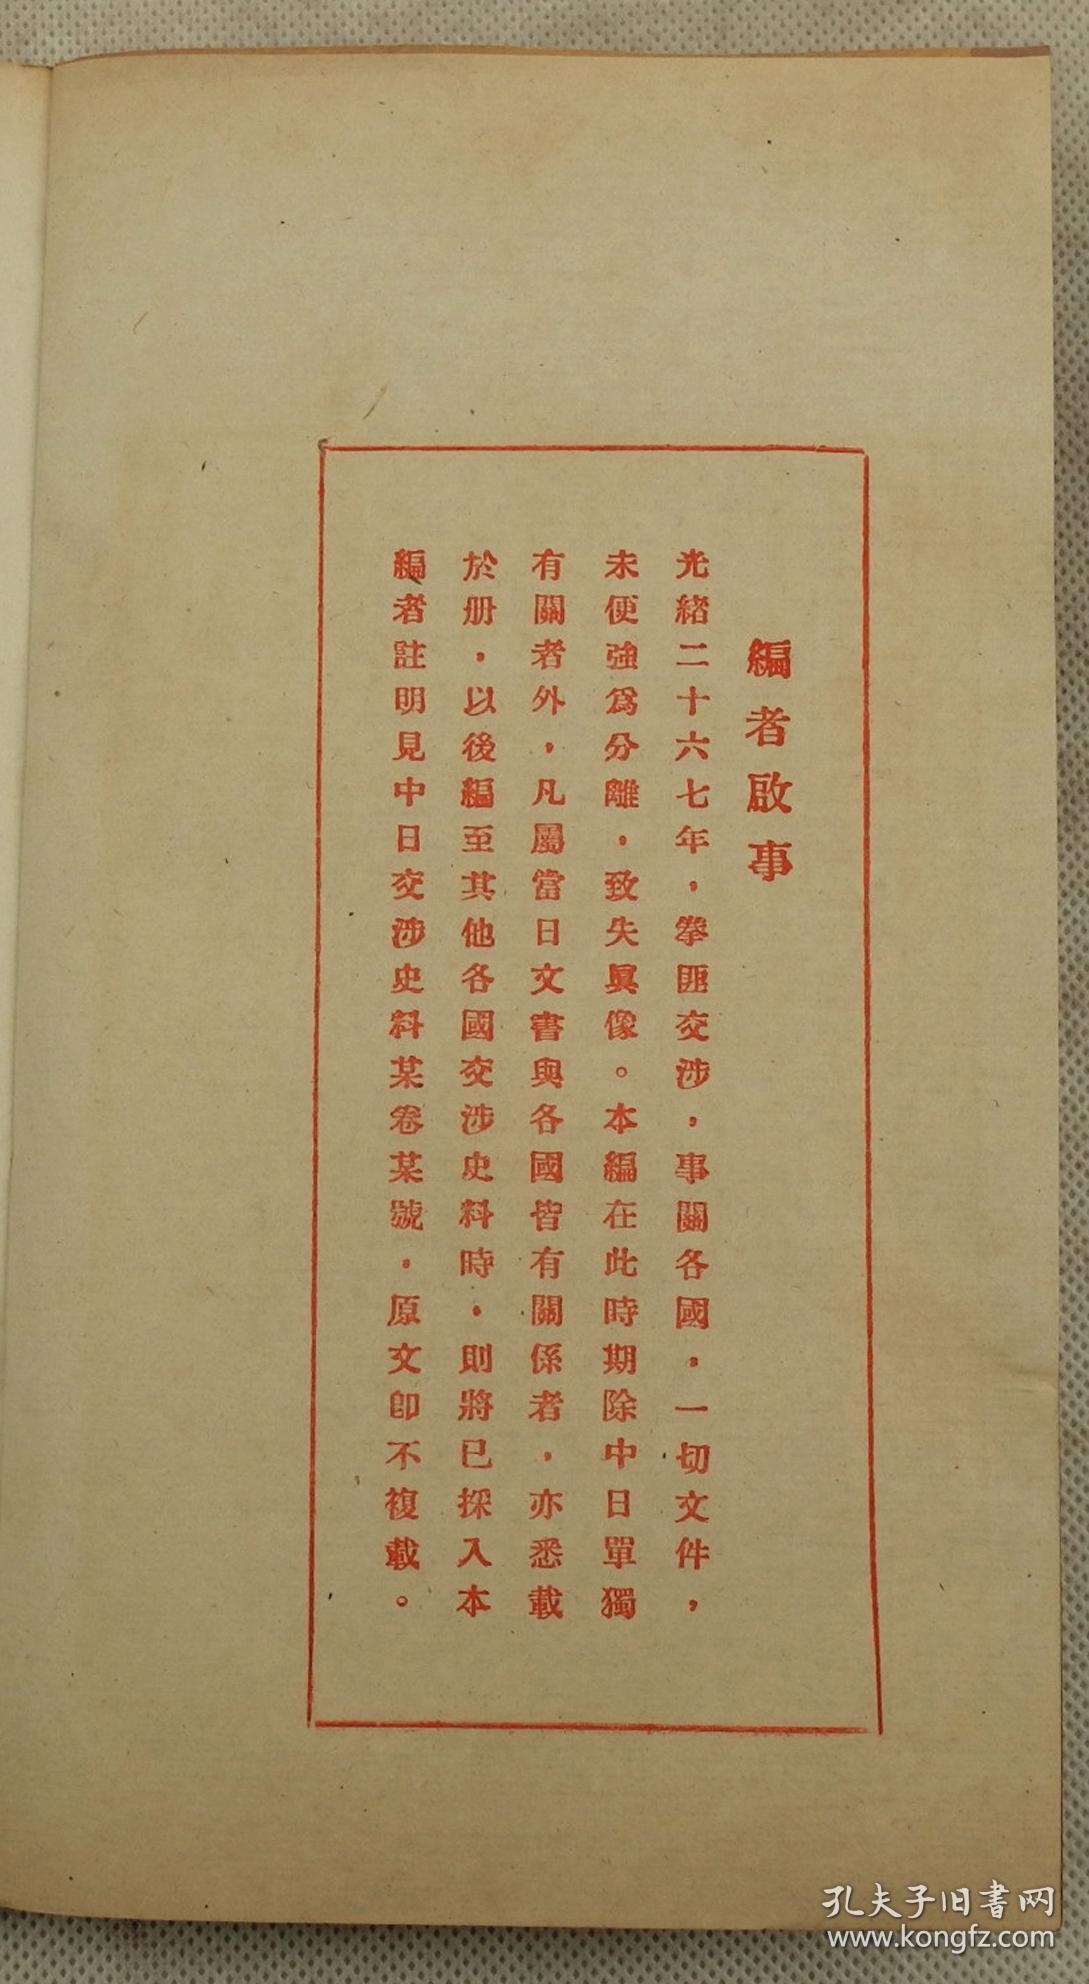 編者啟事
光緒二十六七年，拳匪交涉，事關各國，一切文件，
未便強爲分離，致失眞像。本編在此時期除中日單獨
有關者外，凡屬當日文書與各國皆有關係者，亦悉載
於册，以後編至其他各國交涉史料時，則將已採入本
編者註明見中日交涉史料某卷某號，原文卽不複載。
孔夫子旧書网
www.kongfz.com